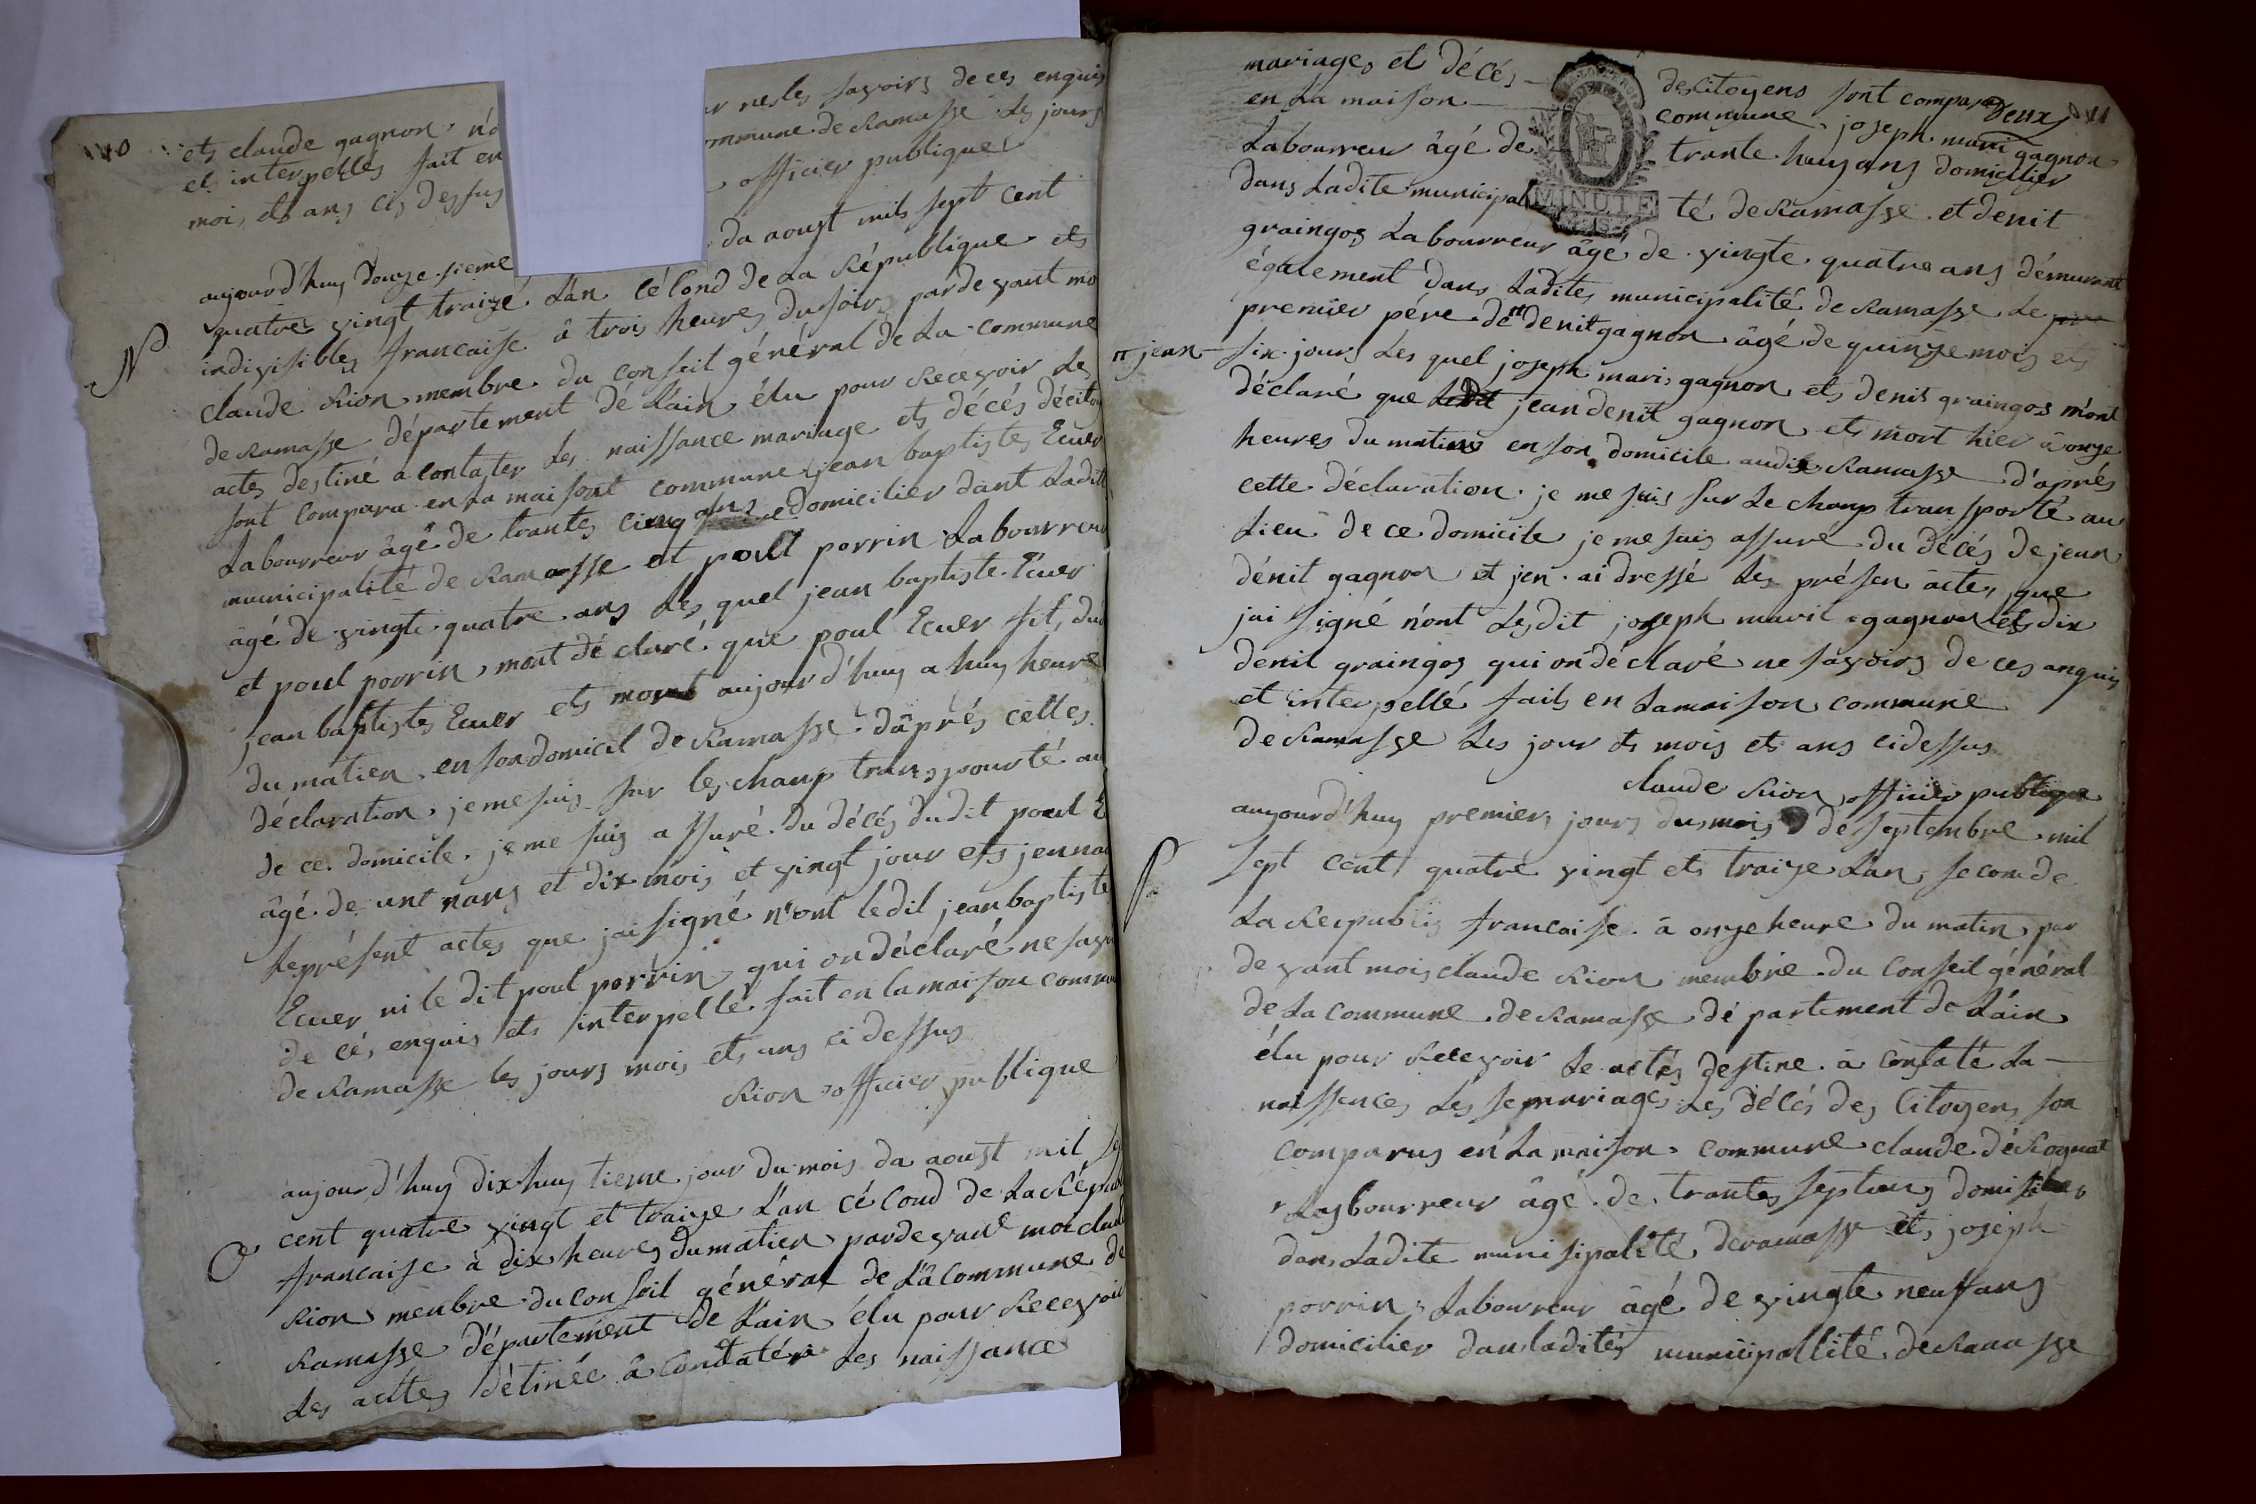 ets claude gagnon n'o
ets interpellés fait en
moi, ets ans cis dessus
ur nesles savoirs de ces enquis
ommune de Ramasse les jours
officier publique
aujourd'huy douze sieme
da aoust mils sept cent
quatres vingt traizé L'an cécond de La République ets
indivisibles francaise â trois heures du soir pardevant mo
claude Rion membre du conseil général de La commune
de Ramasse département dé L'ain élu pour Recevoir Les
actes destiné a contater Les naissance mariage ets décés décito
sont compara en La maisont commune jean baptistes Ecuer
Labourreur âgé de trantes cinq ans domicilier dant Ladite
municipalité de Ramasse et poul perrin Labourreur
âgé de vingte quatre ans Les quel jean baptiste Ecuer
et poul porrin, mont déclaré que poul Ecuer fit, dud
jean baptistes Ecuer ets mort aujourd'huy a huy heure
du matien en son domicil de Ramasse d'âprés celles
déclaration, jemesuis sur les champ transpourté au
de ce domicile. je me suis assuré du décés dudit poul E
âgé de unt nans et dix mois et vingt jour ets jennai
leprésent actes que jai signé n'ont ledit jean baptiste
Ecuer ni le dit poul porrin qui on déclaré ne savo
de cés enquis ets interpellé fait en la maison commu
de Ramasse les jours mois ets ans ci dessus
Rion officier publique
aujourd'huy dixhuy tieme jour du mois da aoust mil se
cent quatre vingt et traize L'an cécond de La Républ
francaise à dix heures du matien pardevant moi claud
Rion menbre du conseil général de L'a commune de
Ramasse département de L'ain élu pour Recevoir
Les acttes détinée â condatér Les naissance
mariages et décés des Citoyens sont compara
Deux
en La maison commune joseph mari gagnon
Labourreur âgé de trante huy ans domicilier
MINUTE
dans Ladite municipalité de Ramasse et denit
graingos Labourreur âgé de vingte quatre ans démurant
également dans Ladites municipalité de Ramasse Le
premier pére de denit gagnon âgé de quinze mois ets
jean
six jours Les quel joseph maris gagnon ets denis graingos m'ont
déclaré que jean denit gagnon ets mort hier à onze
heures du matins en son domicile audis Ramasse d'aprés
cette déclaration je me suis sur Le champ transporté au
Lieu de ce domicile je me suis assuré du décés de jean
dénit gagnon et jen ai dressé Les présen acte, que
jai signé n'ont Lesdit joseph marit gagnon ets dix
denit graingos qui on déclaré ne savoirs de ces anquis
et interpellé faits en Lamaison commune
de Ramasse Les jour ets mois ets ans cidessus
claude Rion officier publique
aujourd'huy premiers jours du mois de septembre mil
sept cent quatre vingt ets traize L'an seconde
La Reipublis francaise à onze heure du matin par
devant mois claude Rion membre du conseil général
de La commune de Ramasse département de L'áin
élu pour Recevoir Le actés destine à constaté La
naissences Les se mariages Les décés des Citoyens son
comparus en La maison commune claude déRognat
Lasbourreur âgé de trantes septans domisilier
dans Ladite munisipalité deramasse et joseph
porrin Labourreur âgé de vingte neuffans
domicilier dans ladités municipallité de Ramasse